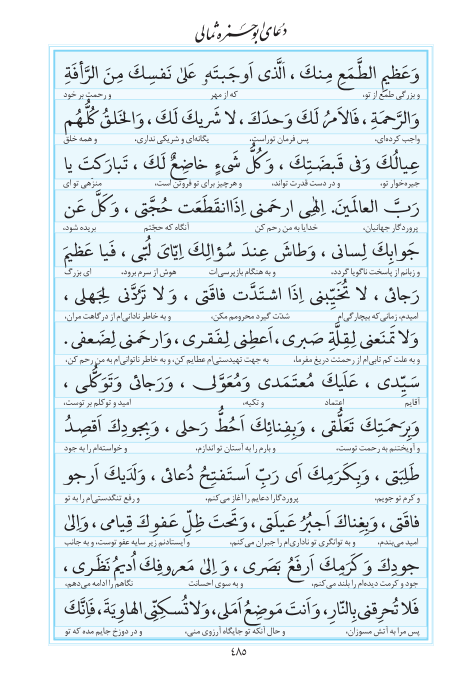 دُعای ابوحمزه ثمالی
وَعَظیمِ الطَّمَعِ مِنكَ ، اَلَّذی اَوجَبتَهٗ عَلیٰ نَفسِكَ مِنَ الرَّأفَةِ
و بزرگی طمع از تو، که از مهر و رحمت بر خود
وَالرَّحمَةِ ، فَالاَمرُ لَكَ وَحدَكَ ، لا شَریكَ لَكَ ، وَالخَلقُ كُلُّهُم
واجب کرده‌ای، پس فرمان توراست، یگانه‌ای و شریکی نداری، و همه خلق
عِیالُكَ وَفی قَبضَتِكَ ، وَكُلُّ شَیءٍ خاضِعٌ لَكَ ، تَبارَكتَ یا
جیره‌خوار تو، و در دست قدرت تواند، و هرچیز برای تو فروتن است، منزهی تو ای
رَبَّ العالَمینَ. اِلٰهی ارحَمنی اِذَاانقَطَعَت حُجَّتی ، وَكَلَّ عَن
پروردگار جهانیان، خدایا به من رحم کن آنگاه که حجّتم بریده شود،
جَوابِكَ لِسانی ، وَطاشَ عِندَ سُؤالِكَ اِیّایَ لُبّی ، فَیا عَظیمَ
و زبانم از پاسخت ناگویا گردد، و به هنگام بازپرسی‌ات هوش از سرم برود، ای بزرگ
رَجائی ، لا تُخَیِّبنی اِذَا اشتَدَّت فاقَتی ، وَ لا تَرُدَّنی لِجَهلی ،
امیدم، زمانی که بیچارگی‌ام شدّت گیرد محرومم مکن، و به خاطر نادانی‌ام از درگاهت مران،
وَلا تَمنَعنی لِقِلَّةِ صَبری، اَعطِنی لِفَقری ، وَارحَمنی لِضَعفی .
و به علت کم تابی‌ام از رحمتت دریغ مفرما، به جهت تهیدستی‌ام عطایم کن، و به خاطر ناتوانی‌ام به من رحم کن،
سَیِّدی ، عَلَیكَ مُعتَمَدی وَمُعَوَّلی ، وَرَجائی وَتَوَكُّلی ،
آقایم اعتماد و تکیه، امید و توکلم بر توست،
وَبِرَحمَتِكَ تَعَلُّقی ، وَبِفِنائِكَ اَحُطُّ رَحلی ، وَبِجودِكَ اَقصِدُ
و آویختنم به رحمت توست، و بارم را به آستان تو اندازم، و خواسته‌ام را به جود
طَلِبَتی ، وَبِكَرَمِكَ اَی رَبِّ اَستَفتِحُ دُعائی ، وَلَدَیكَ اَرجو
و کرم تو جویم، پروردگارا دعایم را آغاز می‌کنم، و رفع تنگدستی‌ام را به تو
فاقَتی ، وَبِغِناكَ اَجبُرُ عَیلَتی ، وَتَحتَ ظِلِّ عَفوِكَ قِیامی ، وَاِلیٰ
امید می‌بندم، و به توانگری تو ناداری‌ام را جبران می‌کنم، و ایستادنم زیر سایه عفو توست، و به جانب
جودِكَ وَ كَرَمِكَ اَرفَعُ بَصَری ، وَ اِلیٰ مَعروفِكَ اُدیمُ نَظَری ،
جود و کرمت دیده‌ام را بلند می‌کنم، و به سوی احسانت نگاهم را ادامه می‌دهم،
فَلا تُحرِقنی بِالنّارِ، وَاَنتَ مَوضِعُ اَمَلی، وَلا تُسكِنِّی الهاوِیَةَ ، فَاِنَّكَ
پس مرا به آتش مسوزان، و حال آنکه تو جایگاه آرزوی منی، و در دوزخ جایم مده که تو
٤٨٥